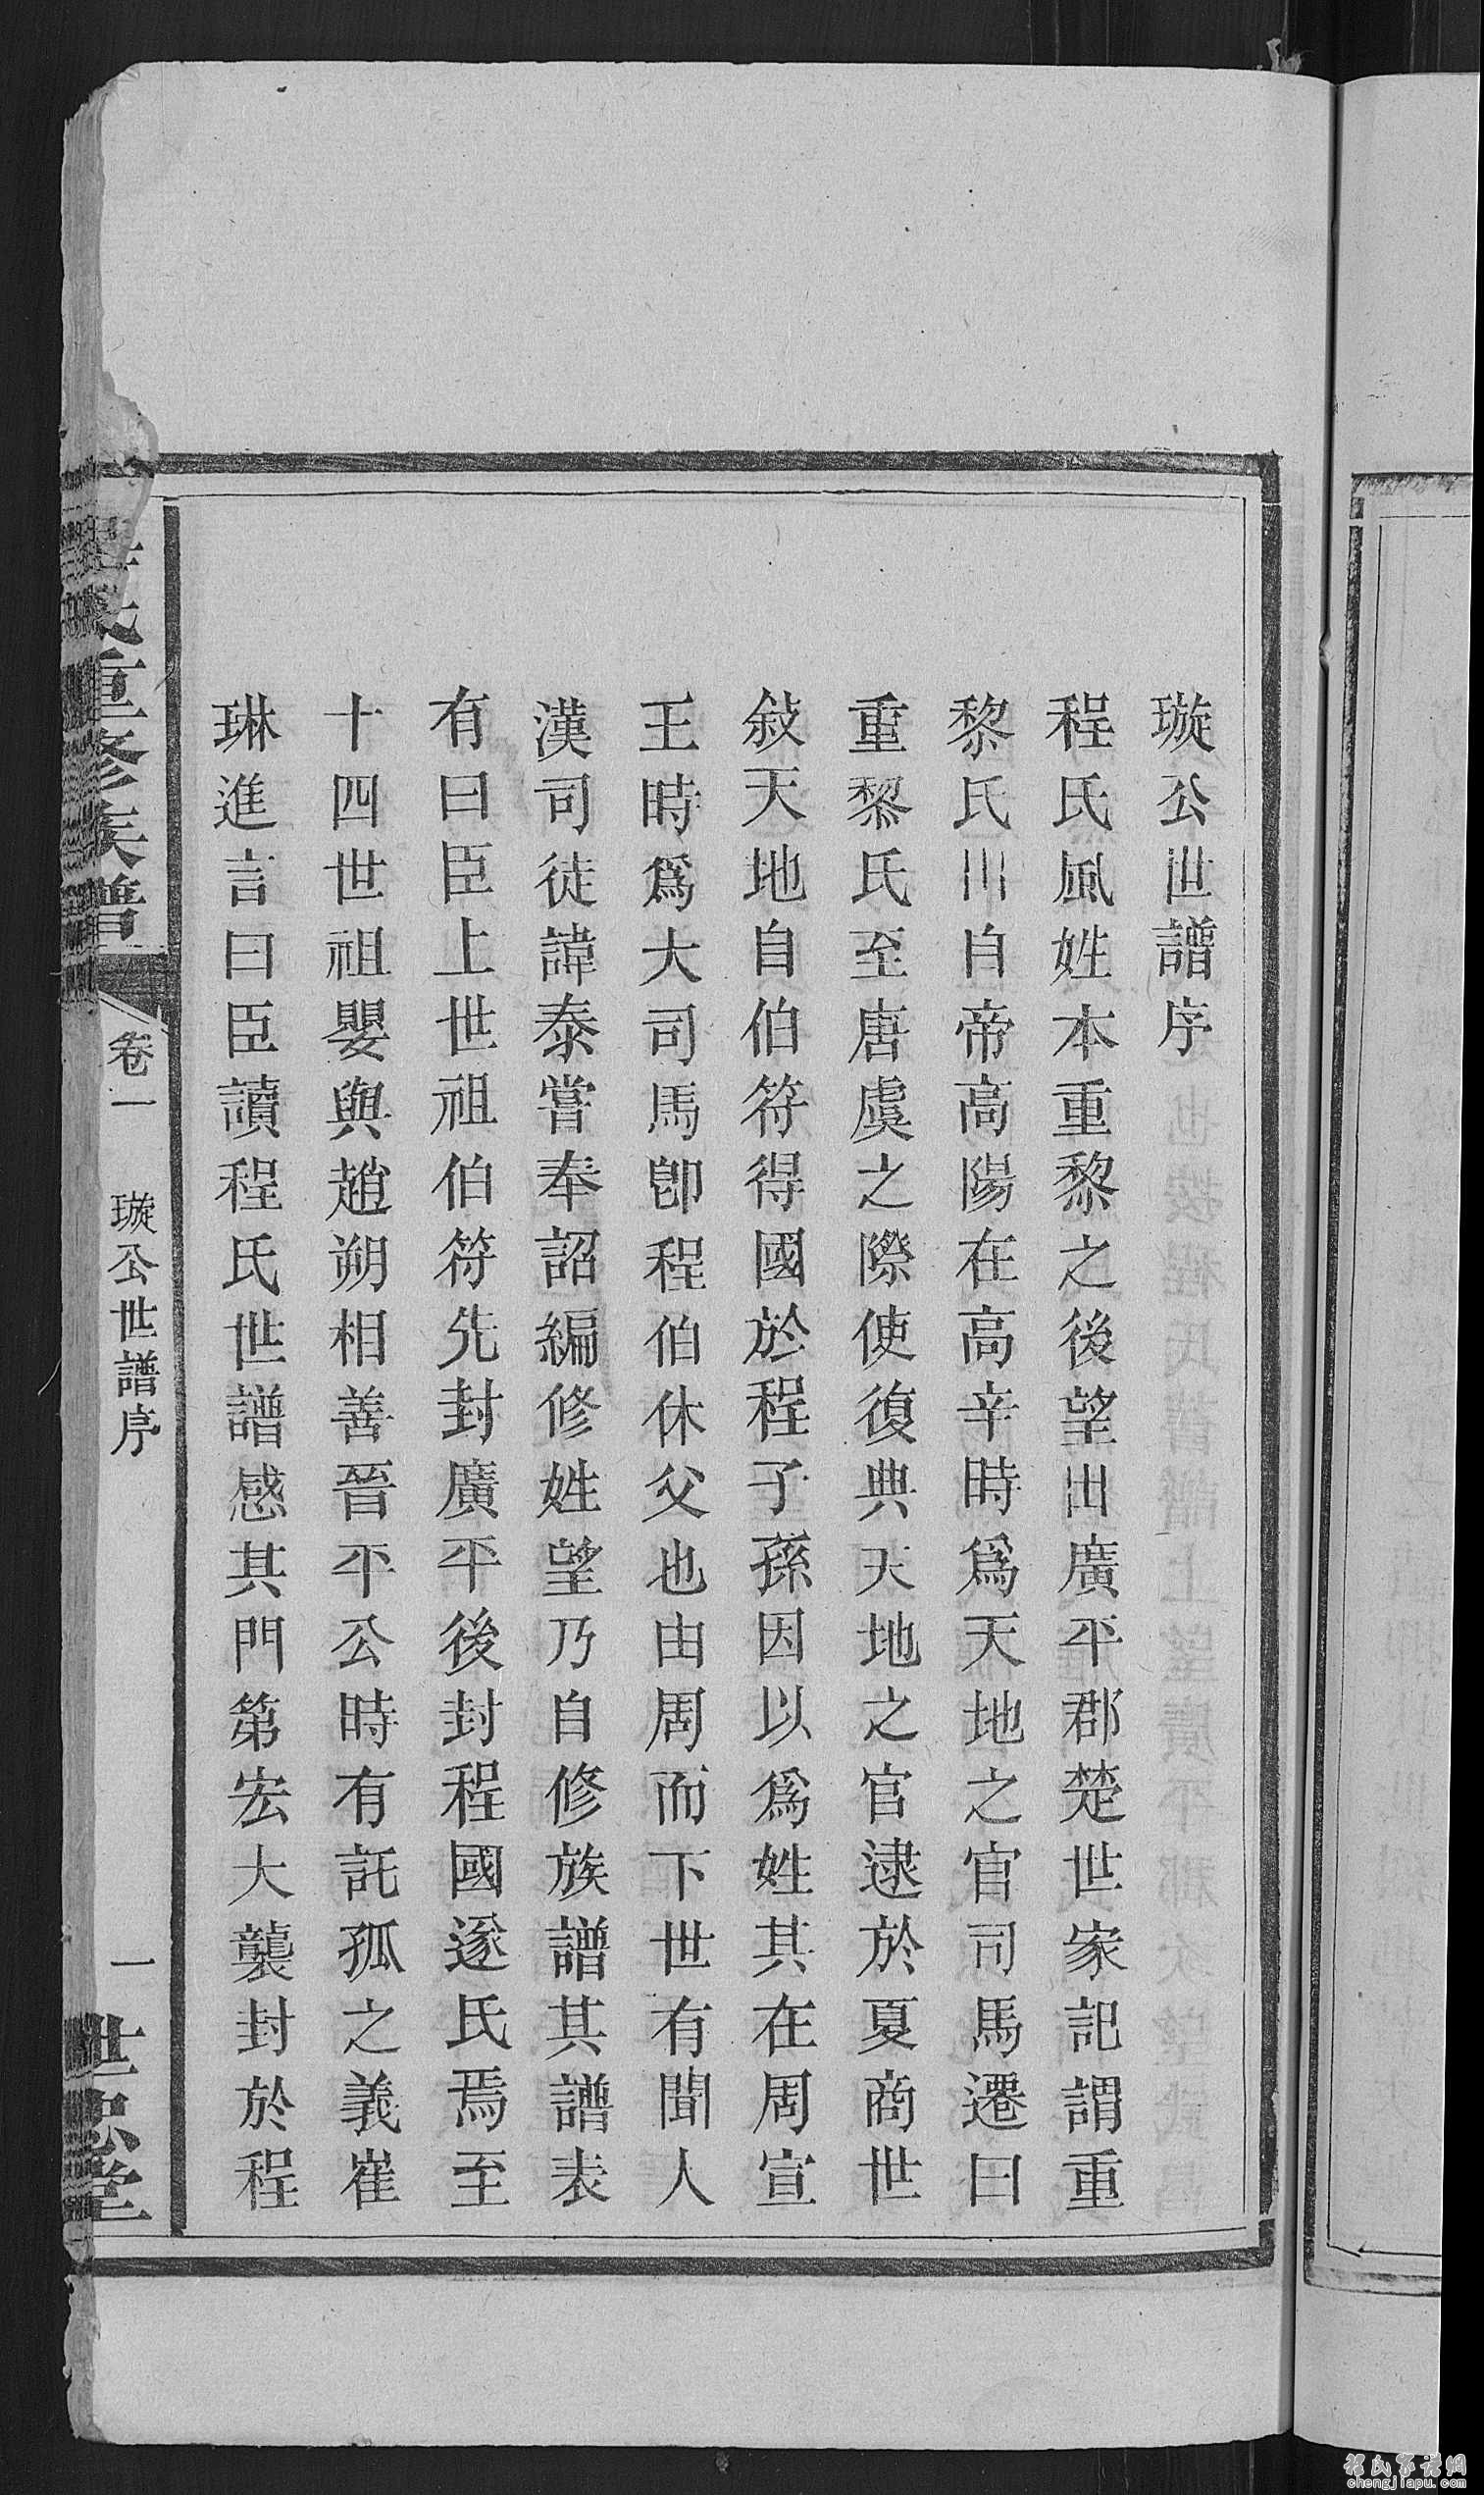 璇公世譜序
程氏風姓本重黎之後望出廣平郡楚世家記謂重
黎氏川自帝高陽在高辛時爲天地之官司馬遷曰
重黎氏至唐虞之際使復典天地之官逮於夏商世
敍天地自伯符得國於程子孫因以爲姓其在周宣
王時爲大司馬卽程伯休父也由周而下世有聞人
漢司徒諱泰嘗奉詔編修姓望乃自修族譜其譜表
有曰臣上世祖伯符先封廣平後封程國遂氏焉至
十四世祖嬰與趙朔相善晉平公時有託孤之義崔
琳進言曰臣讀程氏世譜感其門第宏大襲封於程
氏重修族譜
卷一
璇公世譜序
一
世忠堂
程氏家譜網
chengjiapu.com